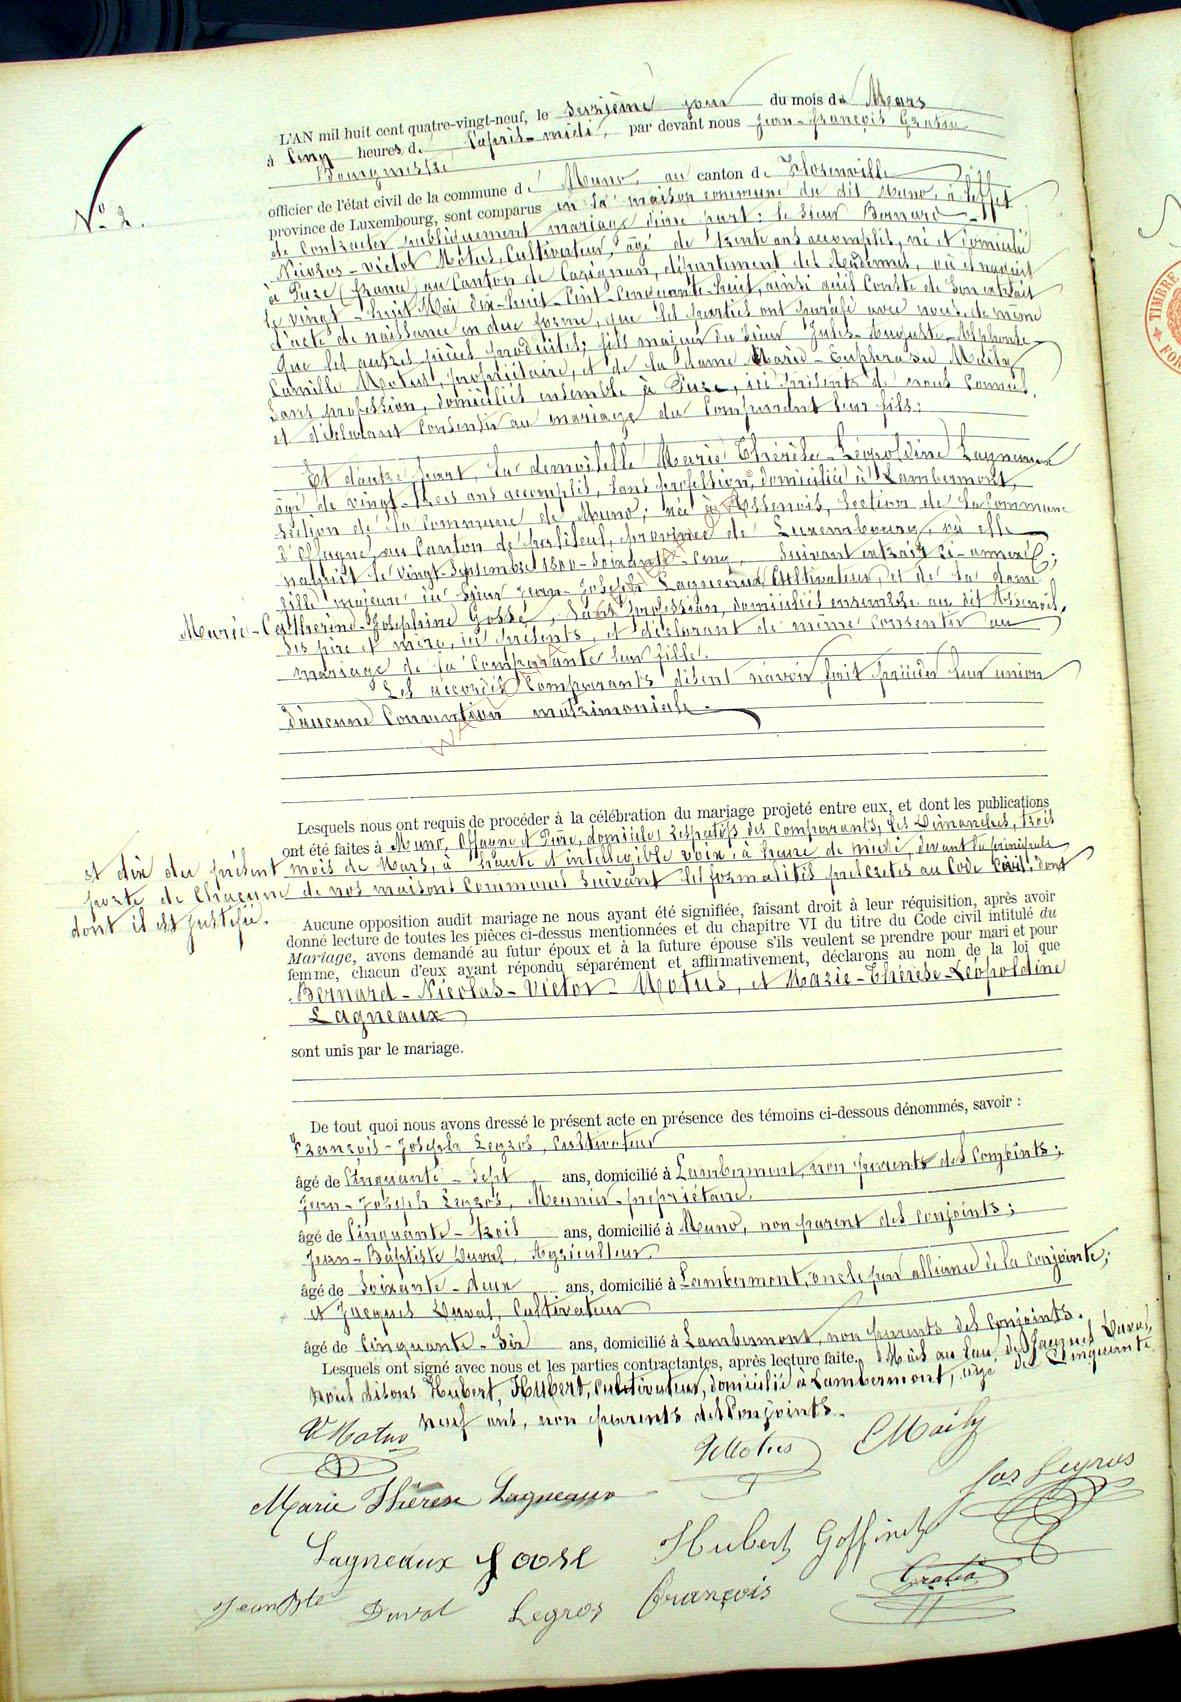 N° 2.
L'AN mil huit cent quatre-vingt-neuf, le seizième jour du mois de Mars
à cinq heures de l'après-midi, par devant nous Jean-François
Bourgmestre
officier de l'état civil de la commune de Muno, au canton de Florenville
province de Luxembourg, sont comparus en la maison commune du dit Muno, à l'effet
de contracter publiquement mariage d'une part: le sieur Bernard-
Nicolas-Victor Motus, Cultivateur, âgé de trente ans accomplis, né et domicilié
à Pure (France) au Canton de Carignan, département des Ardennes, où il naquit
le vingt-huit Mai dix-huit-cent-cinquante-huit, ainsi qu'il conste de son extrait
d'acte de naissance en due forme, que les parties ont paraphé avec nous de même
que les autres pièces produites; fils majeur du Sieur Jules-Auguste-Alphonse-
Camille Motus, propriétaire, et de la dame Marie-Euphrasie Maily
sans profession, domiciliés ensemble à Pure, ici présents de nous connus,
et déclarant consentir au mariage du Comparant leur fils:
Et d'autre part, la demoiselle Marie Thérèse-Léopoldine Lagneaux
âgé de vingt-trois ans accomplis, sans profession, domiciliée à Lambermont,
section de la commune de Muno; née à Assenois, section de la Commune
d'Offagne, au Canton de Paliseul, province de Luxembourg, où elle
naquit le vingt-Septembre 1800-soixante-cinq, suivant extrait ci-annexé;
fille majeure du Sieur Jean-Joseph Lagneaux Cultivateur, et de la dame
Marie-Catherine-Josephine Gosse, sans profession, domiciliés ensemble au dit Assenois,
ses père et mère, ici présents, et déclarant de même consentir au
mariage de la Comparante leur fille.
Les accordés Comparants disent n'avoir fait précéder leur union
d'aucune Convention matrimoniale.
Lesquels nous ont requis de procéder à la célébration du mariage projeté entre eux, et dont les publications
ont été faites à Muno, Offagne et Pure, domiciles respectifs des Comparants, les Dimanches, trois
et dix du présent mois de Mars, à haute et intelligible voix, à heure de midi, devant la principale
porte de chacune de nos maisons Communes suivant les formalités prescrites au Code Civil, dont
dont il est justifié.
Aucune opposition audit mariage ne nous ayant été signifiée, faisant droit à leur réquisition, après avoir
donné lecture de toutes les pièces ci-dessus mentionnées et du chapitre VI du titre du Code civil intitulé du
Mariage, avons demandé au futur époux et à la future épouse s'ils veulent se prendre pour mari et pour
femme, chacun d'eux ayant répondu séparément et affirmativement, déclarons au nom de la loi que
Bernard-Nicolas-Victor-Motus, et Marie-Thérèse-Léopoldine
Lagneaux
sont unis par le mariage.
De tout quoi nous avons dressé le présent acte en présence des témoins ci-dessous dénommés, savoir :
François-Joseph Legros, Cultivateur
âgé de Cinquante-Sept ans, domicilié à Lambermont, non parents des Conjoints;
Jean-Joseph Legros, Meunier-propriétaire,
âgé de Cinquante-trois ans, domicilié à Muno, non parent des conjoints;
Jean-Baptiste Duval, Agriculteur
âgé de Soixante-deux ans, domicilié à Lambermont, oncle par alliance de la conjointe;
et Jacques Duval, Cultivateur
âgé de Cinquante-Six ans, domicilié à Lambermont, non parents des Conjoints.
Lesquels ont signé avec nous et les parties contractantes, après lecture faite. Mais au lieu de Jacques Duval,
nous disons Hubert, Hubert, Cultivateur, domicilié à Lambermont, âgé de Cinquante
neuf ans, non parents des Conjoints.
V Motus
Motus
Maily
Marie Thérèse Lagneaux
Jos Legros
Lagneaux
Goose
Hubert Goffinet
Jean Bte Duval
Legros François